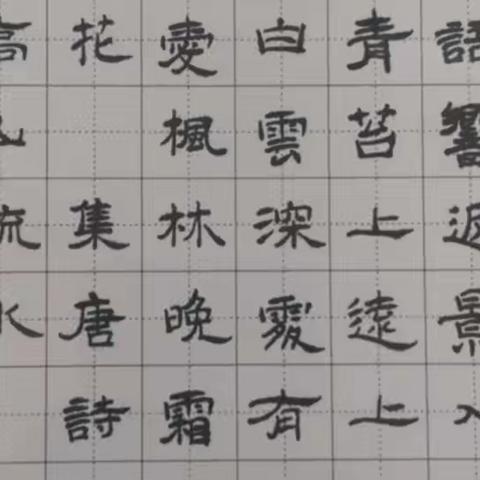 語響返景入
青苔上遠上
白雲深處有
愛楓林晚霜
花 集唐詩
高山流水